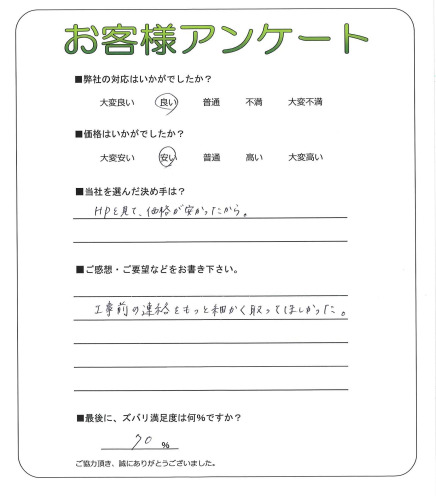 お客様アンケート
■弊社の対応はいかがでしたか？
大変良い 良い 普通 不満 大変不満
■価格はいかがでしたか？
大変安い 安い 普通 高い 大変高い
■当社を選んだ決め手は？
HPを見て、価格が安かったから。
■ご感想・ご要望などをお書き下さい。
工事前の連絡をもっと細かく取ってほしかった。
■最後に、ズバリ満足度は何％ですか？
70 ％
ご協力頂き、誠にありがとうございました。